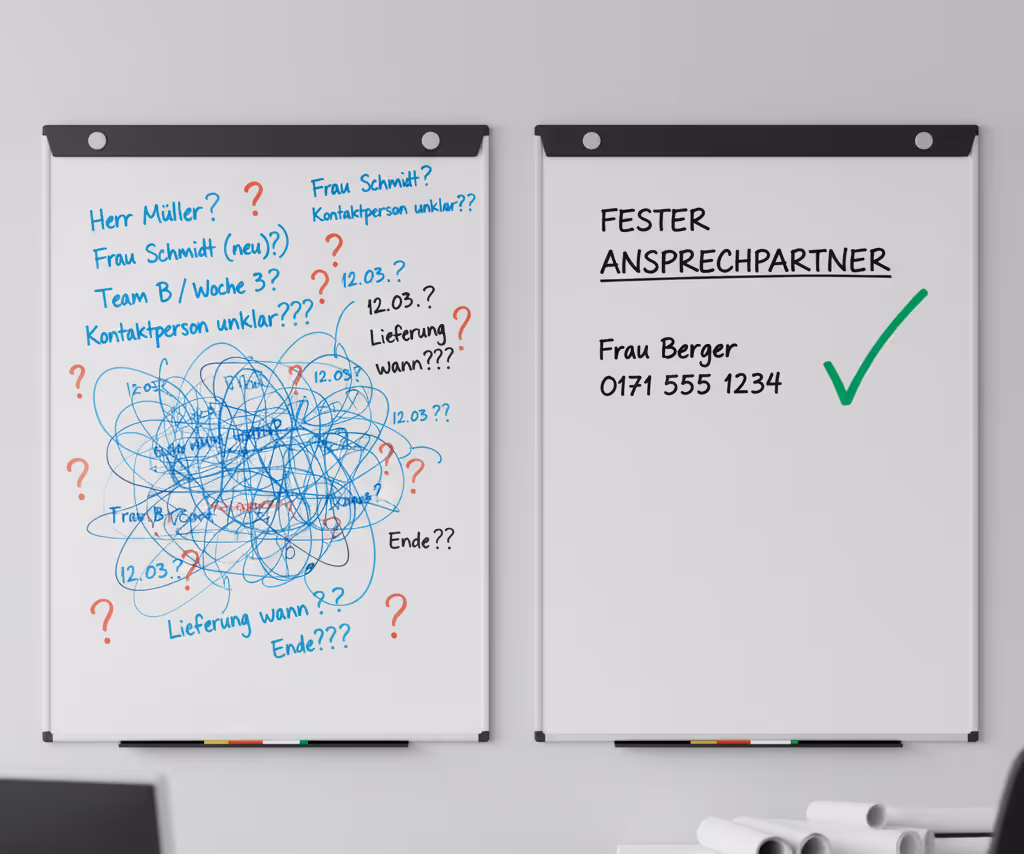 Herr Müller? ?
Frau Schmidt (neu)?)
Team B / Woche 3?
Kontaktperson unklar???
Frau Schmidt?
Kontaktperson unklar??
?
? 12.03.?
12.03.?
Lieferung ?
wann???
?
12.03?
?
12.03?
12.03 ??
?
?
?
Ende??
12.03.?
?
?
Lieferung wann ??
?
Ende???
FESTER
ANSPRECHPARTNER
Frau Berger
0171 555 1234